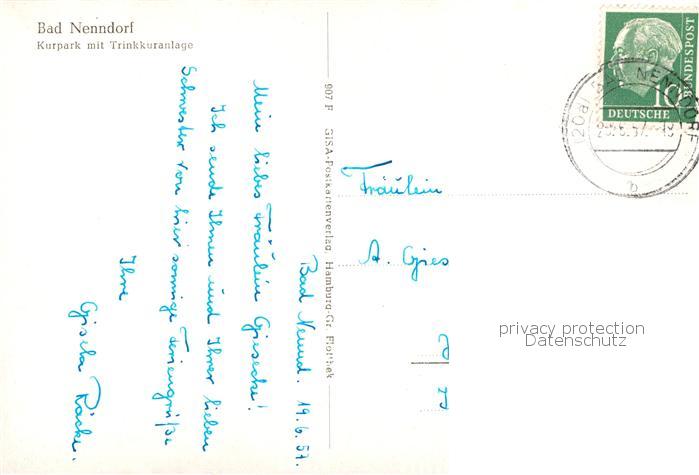 Bad Nenndorf
Kurpark mit Trinkkuranlage
907 F GISA-Postkartenverlag, Hamburg-Gr. Flottbek
Bad Nennd. 19.6.57.
Mein liebes Fräulein Giesecke!
Ich sende Ihnen und Ihrer lieben
Schwester von hier sonnige Feriengrüße
Ihre
Gisela Räcke.
Fräulein
A. Gies
DEUTSCHE
BUNDESPOST
10
(20a) BAD NENNDORF
.6.57.
b
privacy protection
Datenschutz